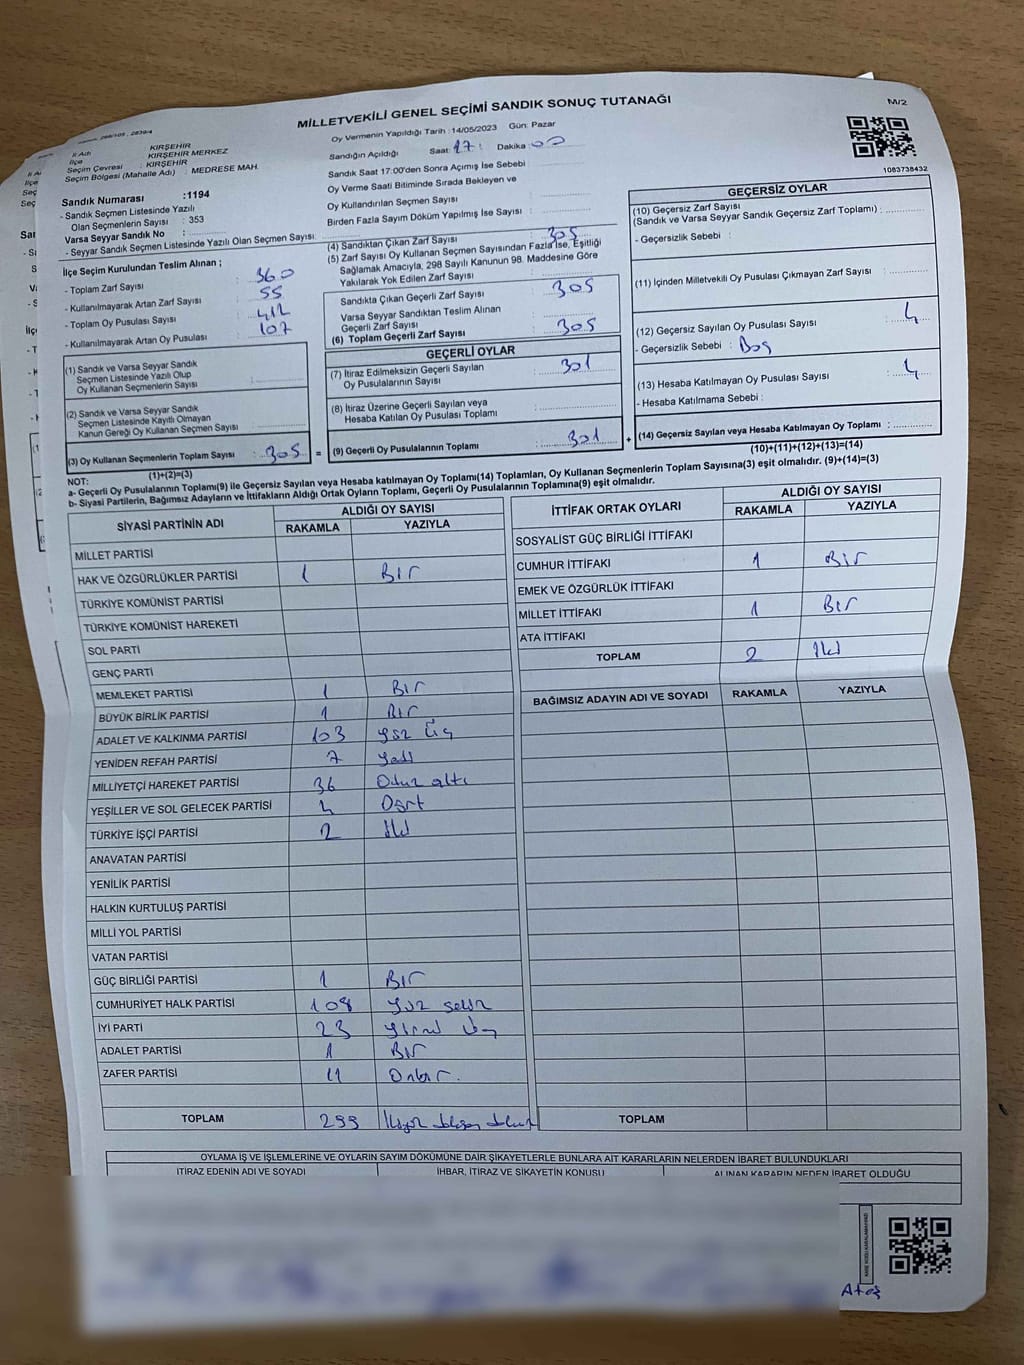 M/2
MİLLETVEKİLİ GENEL SEÇİMİ SANDIK SONUÇ TUTANAĞI
1083738432
İl Adı : KIRŞEHİR
İlçe : KIRŞEHİR MERKEZ
Seçim Çevresi : KIRŞEHİR
Seçim Bölgesi (Mahalle Adı) : MEDRESE MAH.
Sandık Numarası :1194
- Sandık Seçmen Listesinde Yazılı
Olan Seçmenlerin Sayısı : 353
Varsa Seyyar Sandık No :
- Seyyar Sandık Seçmen Listesinde Yazılı Olan Seçmen Sayısı:
Oy Vermenin Yapıldığı Tarih : 14/05/2023 Gün: Pazar
Sandığın Açıldığı Saat: 17 Dakika: 00
Sandık Saat 17:00'den Sonra Açımış İse Sebebi :
Oy Verme Saati Bitiminde Sırada Bekleyen ve
Oy Kullandırılan Seçmen Sayısı :
Birden Fazla Sayım Döküm Yapılmış İse Sayısı :
İlçe Seçim Kurulundan Teslim Alınan ;
- Toplam Zarf Sayısı : 360
- Kullanılmayarak Artan Zarf Sayısı : 55
- Toplam Oy Pusulası Sayısı : 412
- Kullanılmayarak Artan Oy Pusulası : 107
(1) Sandık ve Varsa Seyyar Sandık
Seçmen Listesinde Yazılı Olup
Oy Kullanan Seçmenlerin Sayısı :
(2) Sandık ve Varsa Seyyar Sandık
Seçmen Listesinde Kayıtlı Olmayan
Kanun Gereği Oy Kullanan Seçmen Sayısı :
(3) Oy Kullanan Seçmenlerin Toplam Sayısı : 305 =
(1)+(2)=(3)
(4) Sandıktan Çıkan Zarf Sayısı : 305
(5) Zarf Sayısı Oy Kullanan Seçmen Sayısından Fazla İse, Eşitliği
Sağlamak Amacıyla, 298 Sayılı Kanunun 98. Maddesine Göre
Yakılarak Yok Edilen Zarf Sayısı :
Sandıkta Çıkan Geçerli Zarf Sayısı : 305
Varsa Seyyar Sandıktan Teslim Alınan
Geçerli Zarf Sayısı :
(6) Toplam Geçerli Zarf Sayısı : 305
GEÇERLİ OYLAR
(7) İtiraz Edilmeksizin Geçerli Sayılan
Oy Pusulalarının Sayısı : 301
(8) İtiraz Üzerine Geçerli Sayılan veya
Hesaba Katılan Oy Pusulası Toplamı :
(9) Geçerli Oy Pusulalarının Toplamı : 301 +
GEÇERSİZ OYLAR
(10) Geçersiz Zarf Sayısı
(Sandık ve Varsa Seyyar Sandık Geçersiz Zarf Toplamı) :
- Geçersizlik Sebebi :
(11) İçinden Milletvekili Oy Pusulası Çıkmayan Zarf Sayısı :
(12) Geçersiz Sayılan Oy Pusulası Sayısı : 4
- Geçersizlik Sebebi : Boş
(13) Hesaba Katılmayan Oy Pusulası Sayısı : 4
- Hesaba Katılmama Sebebi :
(14) Geçersiz Sayılan veya Hesaba Katılmayan Oy Toplamı :
(10)+(11)+(12)+(13)=(14)
NOT:
a- Geçerli Oy Pusulalarının Toplamı(9) ile Geçersiz Sayılan veya Hesaba katılmayan Oy Toplamı(14) Toplamları, Oy Kullanan Seçmenlerin Toplam Sayısına(3) eşit olmalıdır. (9)+(14)=(3)
b- Siyasi Partilerin, Bağımsız Adayların ve İttifakların Aldığı Ortak Oyların Toplamı, Geçerli Oy Pusulalarının Toplamına(9) eşit olmalıdır.
SİYASİ PARTİNİN ADI
ALDIĞI OY SAYISI
RAKAMLA YAZIYLA
MİLLET PARTİSİ
HAK VE ÖZGÜRLÜKLER PARTİSİ 1 Bir
TÜRKİYE KOMÜNİST PARTİSİ
TÜRKİYE KOMÜNİST HAREKETİ
SOL PARTİ
GENÇ PARTİ
MEMLEKET PARTİSİ 1 Bir
BÜYÜK BİRLİK PARTİSİ 1 Bir
ADALET VE KALKINMA PARTİSİ 103 yüz üç
YENİDEN REFAH PARTİSİ 7 yedi
MİLLİYETÇİ HAREKET PARTİSİ 36 Otuz altı
YEŞİLLER VE SOL GELECEK PARTİSİ 4 Dört
TÜRKİYE İŞÇİ PARTİSİ 2 iki
ANAVATAN PARTİSİ
YENİLİK PARTİSİ
HALKIN KURTULUŞ PARTİSİ
MİLLİ YOL PARTİSİ
VATAN PARTİSİ
GÜÇ BİRLİĞİ PARTİSİ 1 Bir
CUMHURİYET HALK PARTİSİ 108 yüz sekiz
İYİ PARTİ 23 yirmi üç
ADALET PARTİSİ 1 Bir
ZAFER PARTİSİ 11 Onbir.
TOPLAM 299 ikiyüz doksan dokuz
İTTİFAK ORTAK OYLARI
ALDIĞI OY SAYISI
RAKAMLA YAZIYLA
SOSYALİST GÜÇ BİRLİĞİ İTTİFAKI
CUMHUR İTTİFAKI 1 Bir
EMEK VE ÖZGÜRLÜK İTTİFAKI
MİLLET İTTİFAKI 1 Bir
ATA İTTİFAKI
TOPLAM 2 iki
BAĞIMSIZ ADAYIN ADI VE SOYADI RAKAMLA YAZIYLA
TOPLAM
OYLAMA İŞ VE İŞLEMLERİNE VE OYLARIN SAYIM DÖKÜMÜNE DAİR ŞİKAYETLERLE BUNLARA AİT KARARLARIN NELERDEN İBARET BULUNDUKLARI
İTİRAZ EDENİN ADI VE SOYADI İHBAR, İTİRAZ VE ŞİKAYETİN KONUSU ALINAN KARARIN NEDEN İBARET OLDUĞU
Ataş